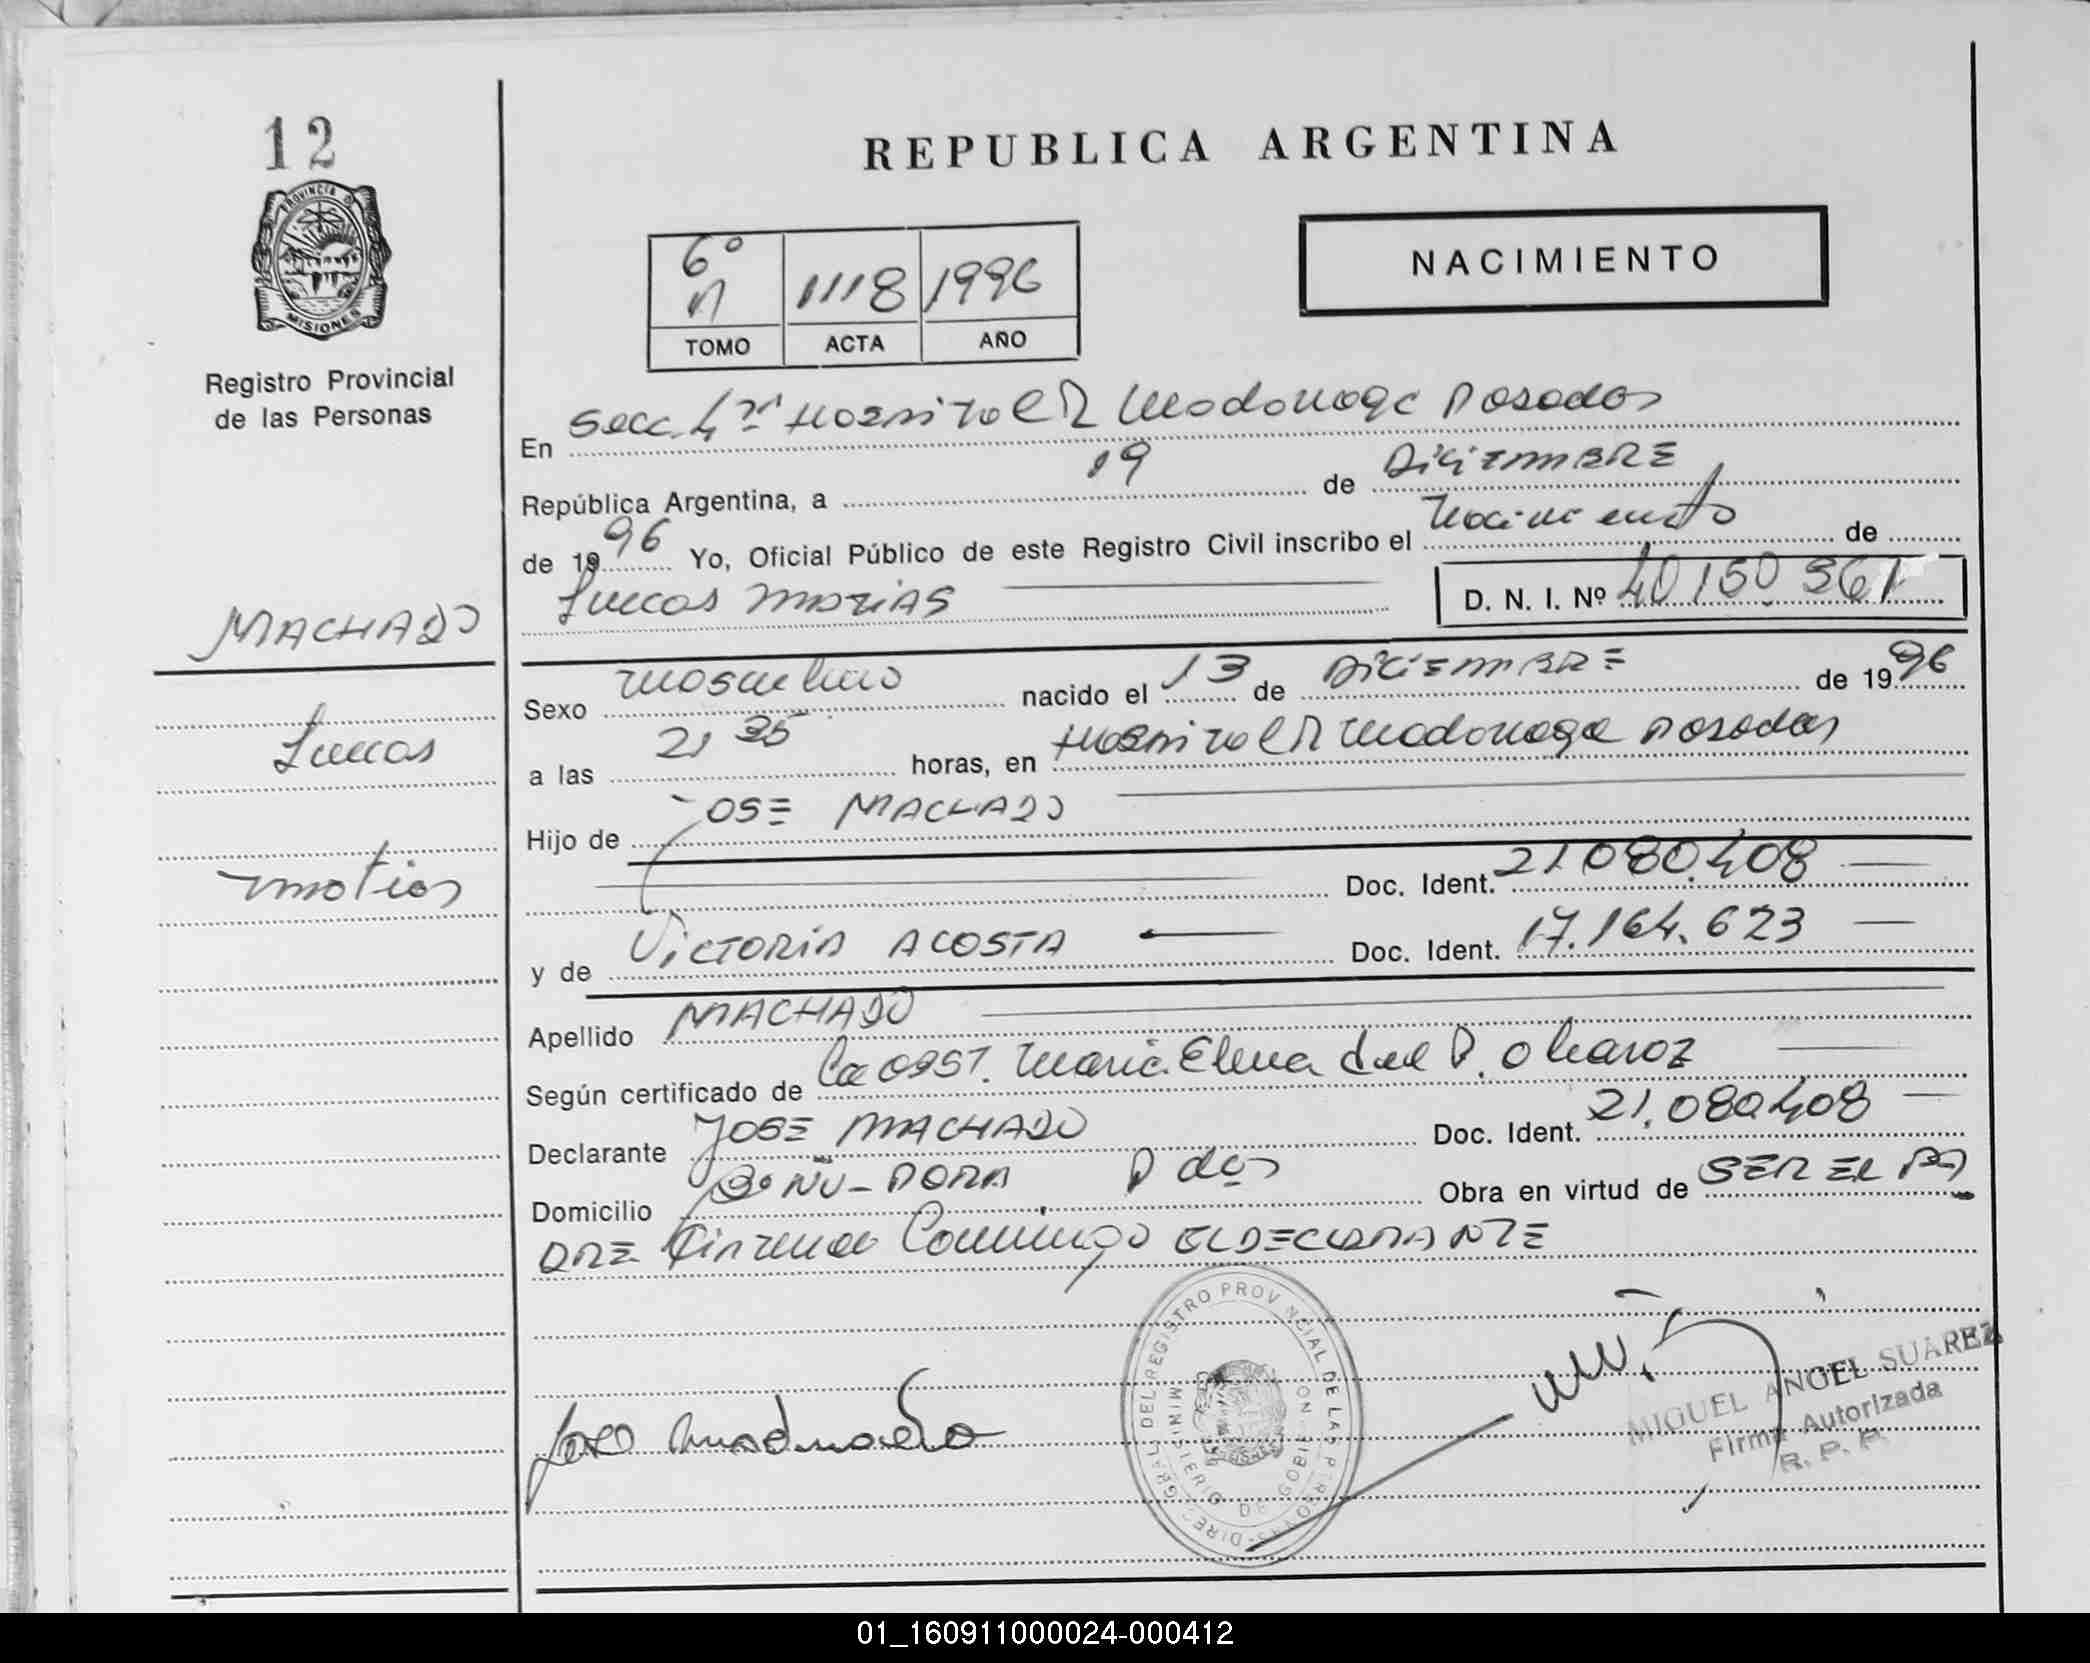 12
REPUBLICA ARGENTINA
PROVINCIA D
MISIONES
Registro Provincial
de las Personas
NACIMIENTO
6º 1118 1996
TOMO ACTA AÑO
En Secc. 4ta Hospital R Madonaga Posadas
República Argentina, a 19 de DICIEMBRE
de 1996 Yo, Oficial Público de este Registro Civil inscribo el Nacimiento de
Lucas MATIAS D. N. I. Nº 40150 361
MACHADO
Lucas
Matias
Sexo Masculino nacido el 13 de DICIEMBRE de 1996
a las 21 35 horas, en Hospital R Madonaga Posadas
Hijo de JOSE MACHADO
Doc. Ident. 21080.408
y de VICTORIA ACOSTA Doc. Ident. 17.164.623
Apellido MACHADO
Según certificado de La OBST. Maria Elena del P. Olearoz
Declarante JOSE MACHADO Doc. Ident. 21.080408
Domicilio Bº ÑU-PORA Pdas Obra en virtud de SER EL PA
DRE Firmando Conmigo EL DECLARANTE
DIREC GRAL DEL REGISTRO PROVINCIAL DE LAS PERSONAS
MINISTERIO DE GOBIERNO
MISIONES
MIGUEL ANGEL SUAREZ
Firma Autorizada
R. P. P.
01_160911000024-000412